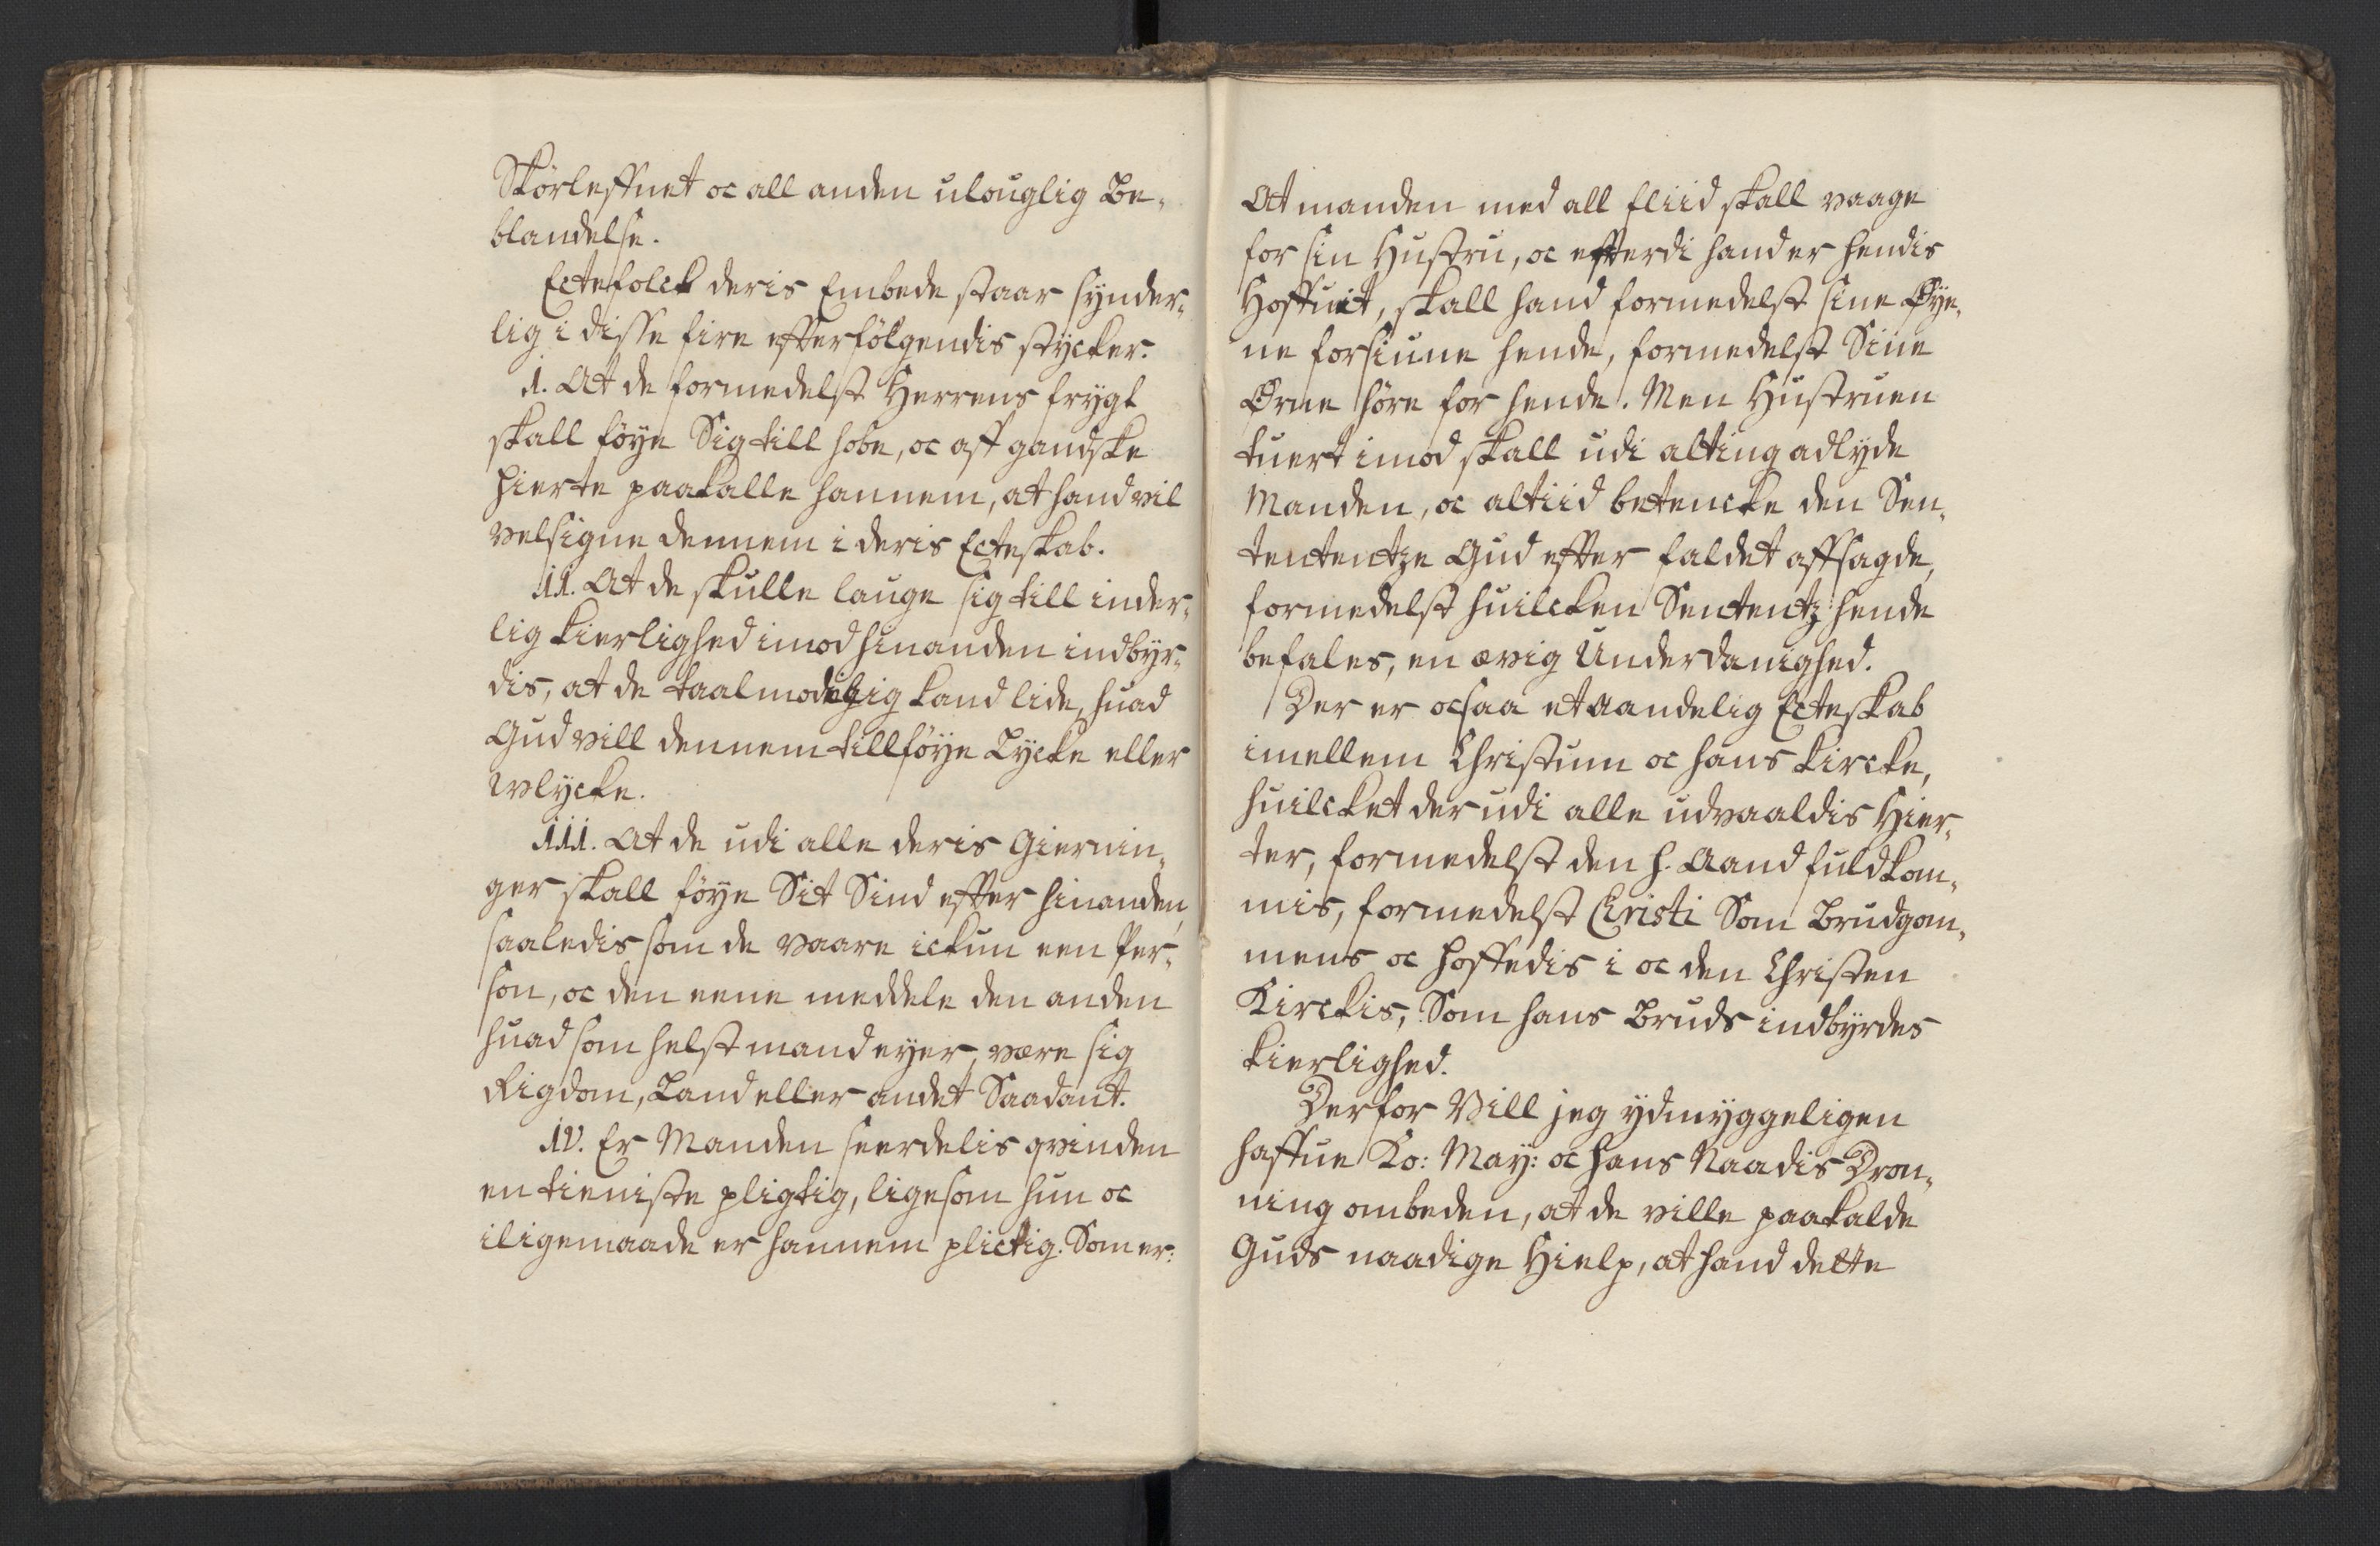 Skörleffnet oc all anden ulouglig Be-
blandelse.
Ectefolck deris Embede staar synder-
lig i disse fire efterfölgendis stycker.
I. At de formedelst Herrens frygt
skall föye Sig till hobe, oc aff gandske
hierte paakalle hannem, at hand vil
velsigne dennem i deris Ecteskab.
II. At de skulle lauge sig till inder-
lig kierlighed imod hinanden indbyr-
dis, at de taalmodig kand lide, huad
Gud vill dennem tillföye Lycke eller
Wlycke.
III. At de udi alle deris Giernin-
ger skall föye Sit Sind efter hinanden,
saaledis som de vaare ickun een Per-
son, oc den eene meddele den anden
huad som helst mand eyer, være sig
Rigdom, Land eller andet Saadant.
IV. Er Manden seerdelis qvinden
en tieniste pligtig, ligesom hun oc
iligemaade er hannem plictig. Som er:
At manden med all fliid skall vaage
for sin Hustru, oc efterdi hand er hendis
Hoffuit, skall hand formedelst sine Øye-
ne forsiune hende, formedelst Sine
Ørne höre for hende. Men Hustruen
tuert imod skall udi alting adlyde
Manden, oc altiid betencke den Sen-
tententze Gud efter faldet affsagde,
formedelst huilcken Sententz: hende
befales, en ævig Underdanighed.
Der er ocsaa et aandelig Ecteskab
imellem Christum oc hans kircke,
huilcket der udi alle udvaaldis Hier-
ter, formedelst den H. Aand fuldkom-
mis, formedelst Christi Som Brudgom-
mens oc hoffedis i oc den Christen
Kirckis, Som hans Bruds indbyrdes
kierlighed.
Derfor Vill jeg ydmyggeligen
haffue Ko: May: oc Hans Naadis Dron-
ning ombeden, at de ville paakalde
Guds naadige Hielp, at hand dette